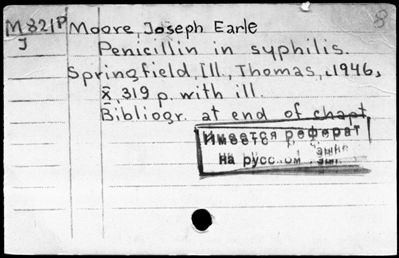 8
M821P Moore, Joseph Earle
J Penicillin in syphilis.
Springfield, Ill., Thomas, c1946,
X, 319 p. with ill.
Bibliogr. at end of chapt
Имеется реферат
на русском